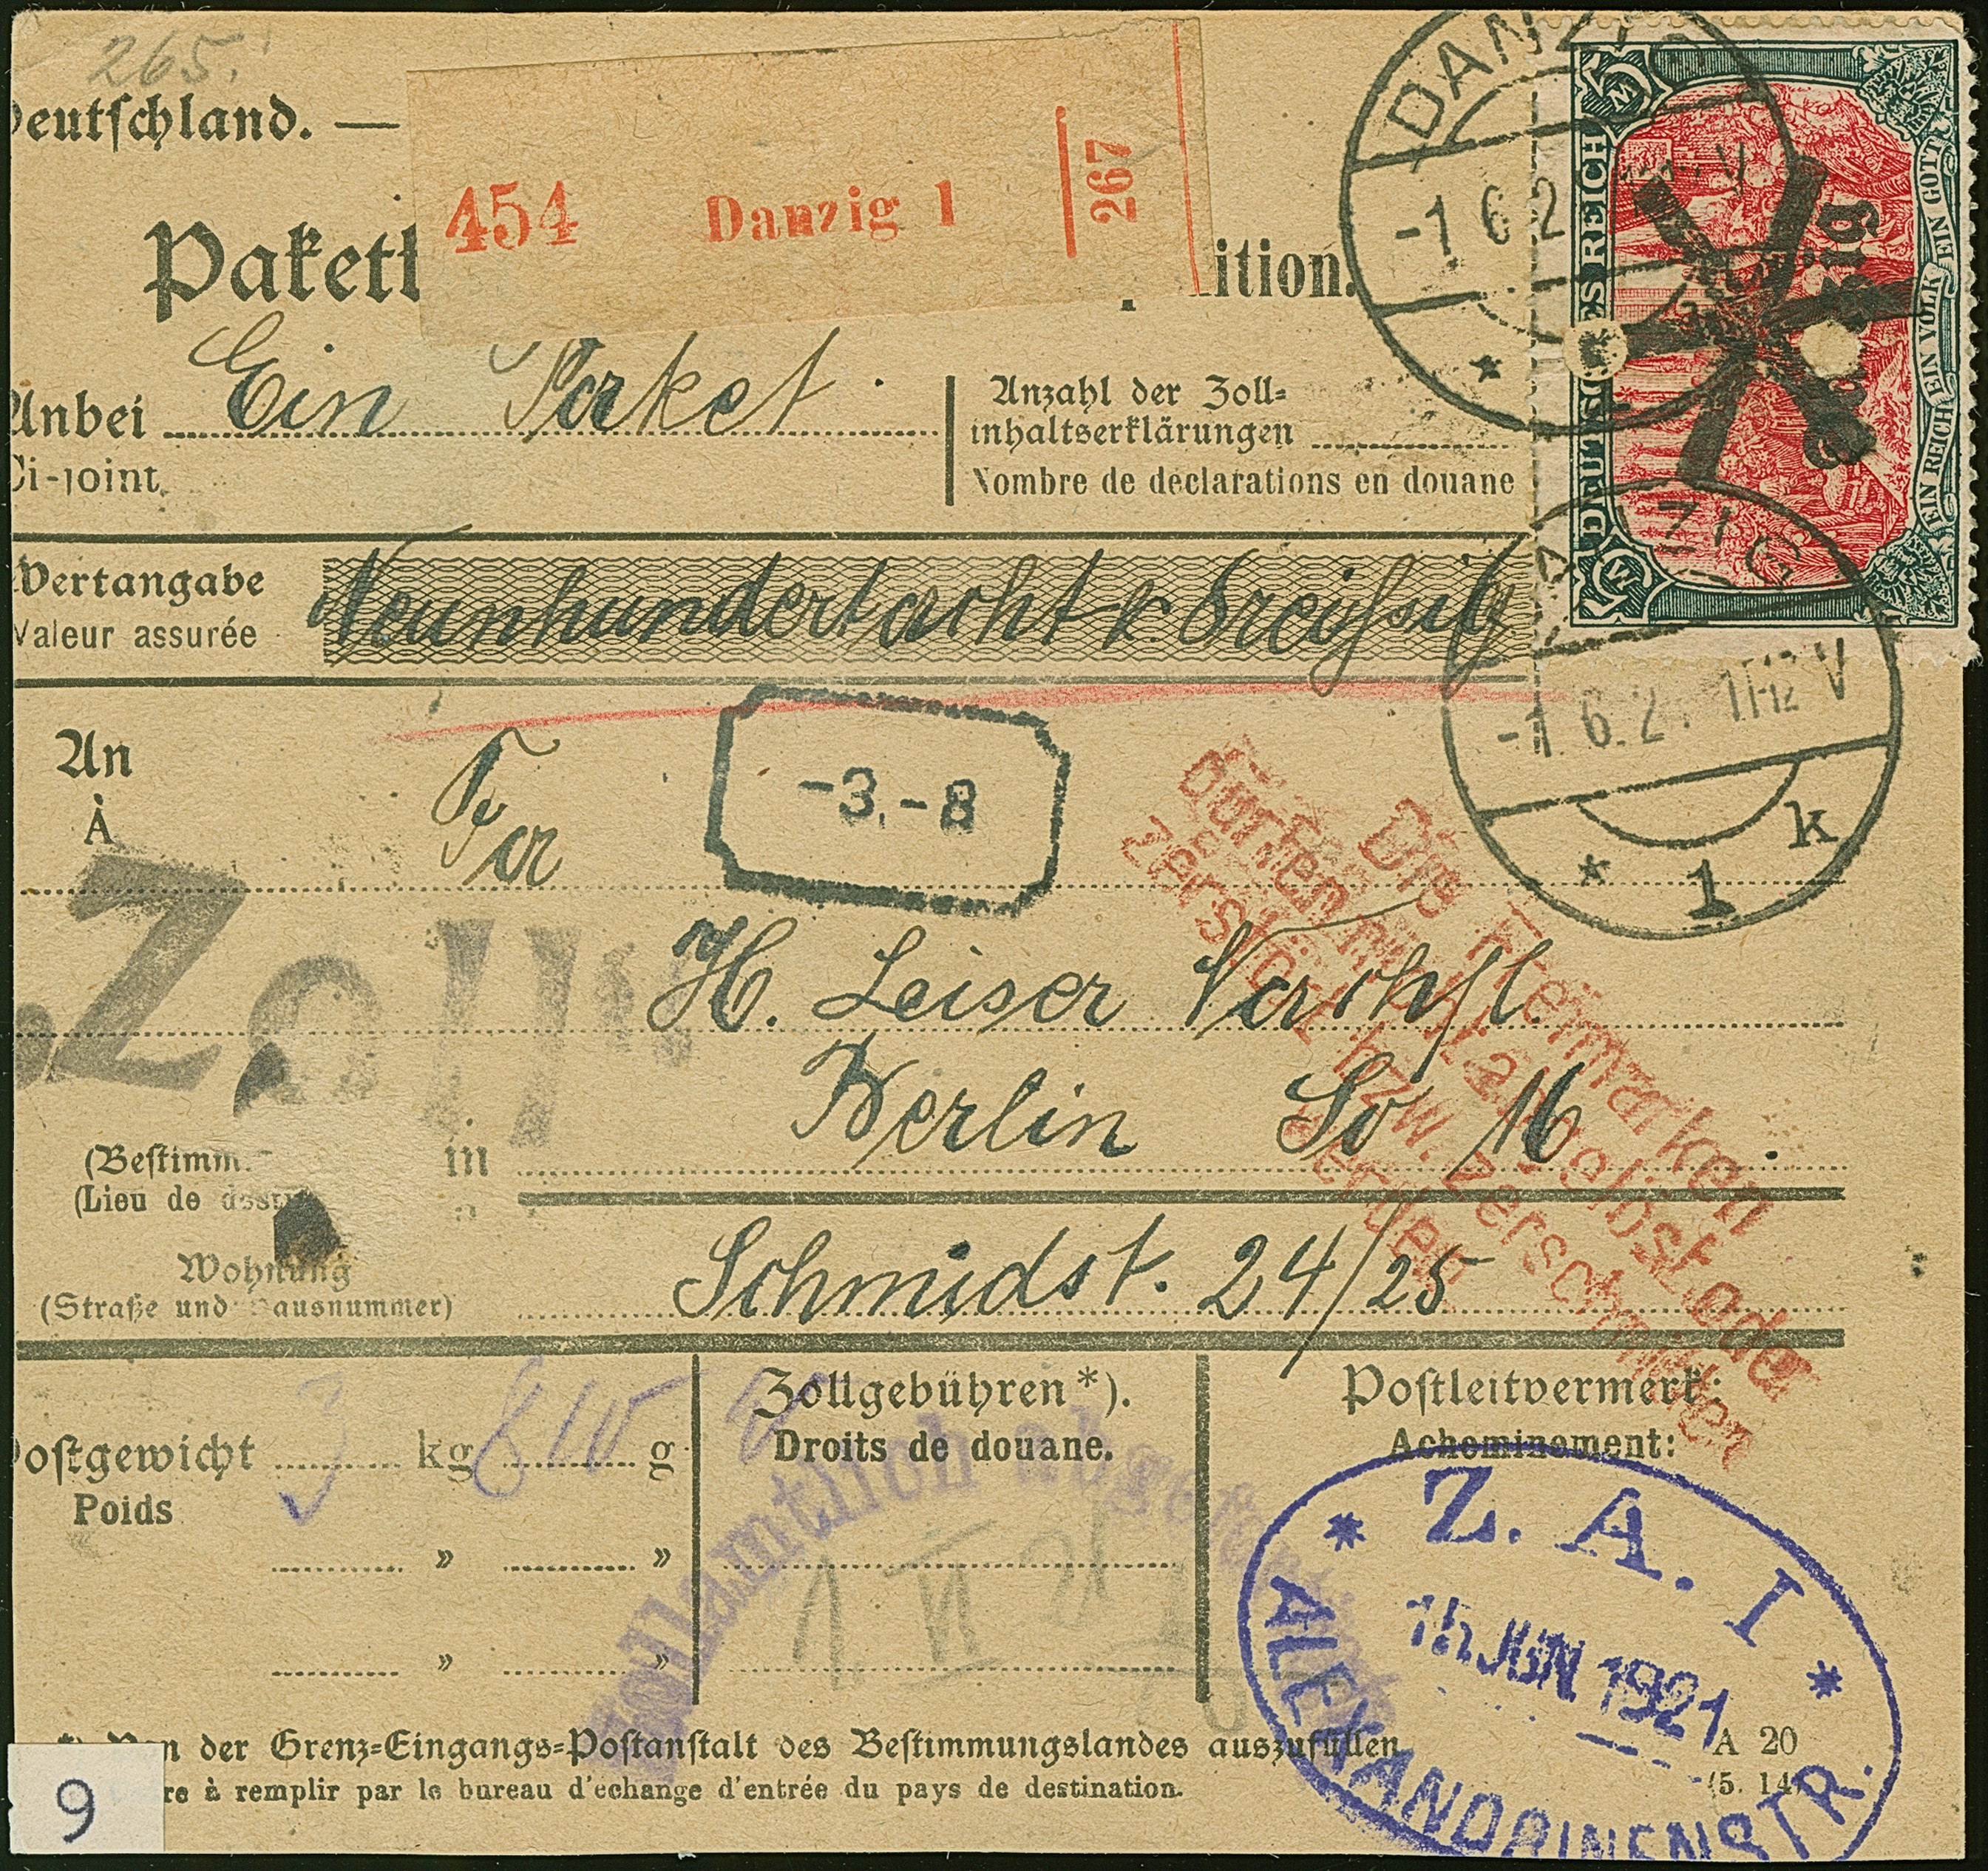 265.
Deutschland. —
454 Danzig 1 267
Paket
ition.
Anbei Ein Paket
Ci-joint
Anzahl der Zoll-
inhaltserklärungen
Nombre de déclarations en douane
DANZIG
-1 6 2
DEUTSCHES REICH
EIN REICH EIN VOLK EIN GOTT
Danzig
Wertangabe
Valeur assurée
Neunhundertacht & dreißig
DANZIG
-1.6.2. 11-12 V
* 1 k
An
À
Fa
-3.-8
H. Leiser Nachfl.
Zoll
Berlin So 16
(Bestimm
(Lieu de dest
in
Wohnung
(Straße und Hausnummer)
Schmidst. 24/25
Die Freimarken
dürfen nicht abgelöst oder
zerstört bzw. zerschnitten
werden
Postgewicht 3 kg 810 g
Poids
» »
» »
Zollgebühren*).
Droits de douane.
Zollamtlich
1 VI 21
Postleitvermerk:
Acheminement:
* Z. A. I *
15. JUN 1921
ALEXANDRINENSTR.
*) Von der Grenz-Eingangs-Postanstalt des Bestimmungslandes auszufüllen
re à remplir par le bureau d'échange d'entrée du pays de destination.
A 20
(5. 14
9